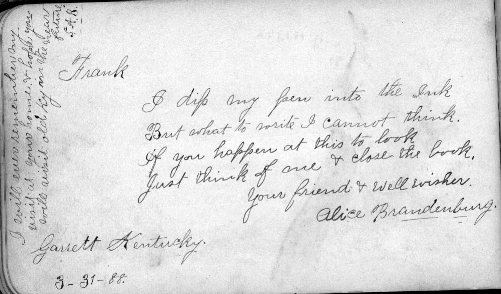 Frank
I dip my pen into the Ink
But what to write I cannot think.
if you happen at this to look
Just think of me & close the book,
Your friend & well wisher.
Alice Brandenburg.
Garrett Kentucky.
3-31-88.
I will ever remember my
visit at your home & hope you
will visit old Ky in the near
future
S.A.B.